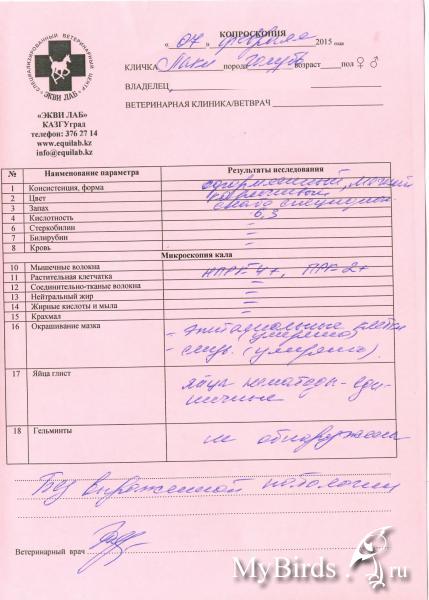 КОПРОСКОПИЯ
СПЕЦИАЛИЗИРОВАННЫЙ ВЕТЕРИНАРНЫЙ ЦЕНТР
ЭКВИ ЛАБ
« 07 » февраля 2015 года
КЛИЧКА Паки порода голубь возраст пол ♀ ♂
ВЛАДЕЛЕЦ
ВЕТЕРИНАРНАЯ КЛИНИКА/ВЕТВРАЧ
«ЭКВИ ЛАБ»
КАЗГУград
телефон: 376 27 14
www.equilab.kz
info@equilab.kz
№ Наименование параметра Результаты исследования
1 Консистенция, форма оформленный, мягкий
2 Цвет коричневый
3 Запах слабо специфич.
4 Кислотность 6,3
6 Стеркобилин –
7 Билирубин –
8 Кровь –
Микроскопия кала
10 Мышечные волокна –
11 Растительная клетчатка НПРГ-4+, ПРГ-2+
12 Соединительно-тканые волокна –
13 Нейтральный жир –
14 Жирные кислоты и мыла –
15 Крахмал –
16 Окрашивание мазка - эпителиальные клетки
(умеренно)
- слизь (умеренно).
17 Яйца глист яйца нематоды - еди-
ничные
18 Гельминты не обнаружены
Без выраженной патологии
Ветеринарный врач
MyBirds.ru